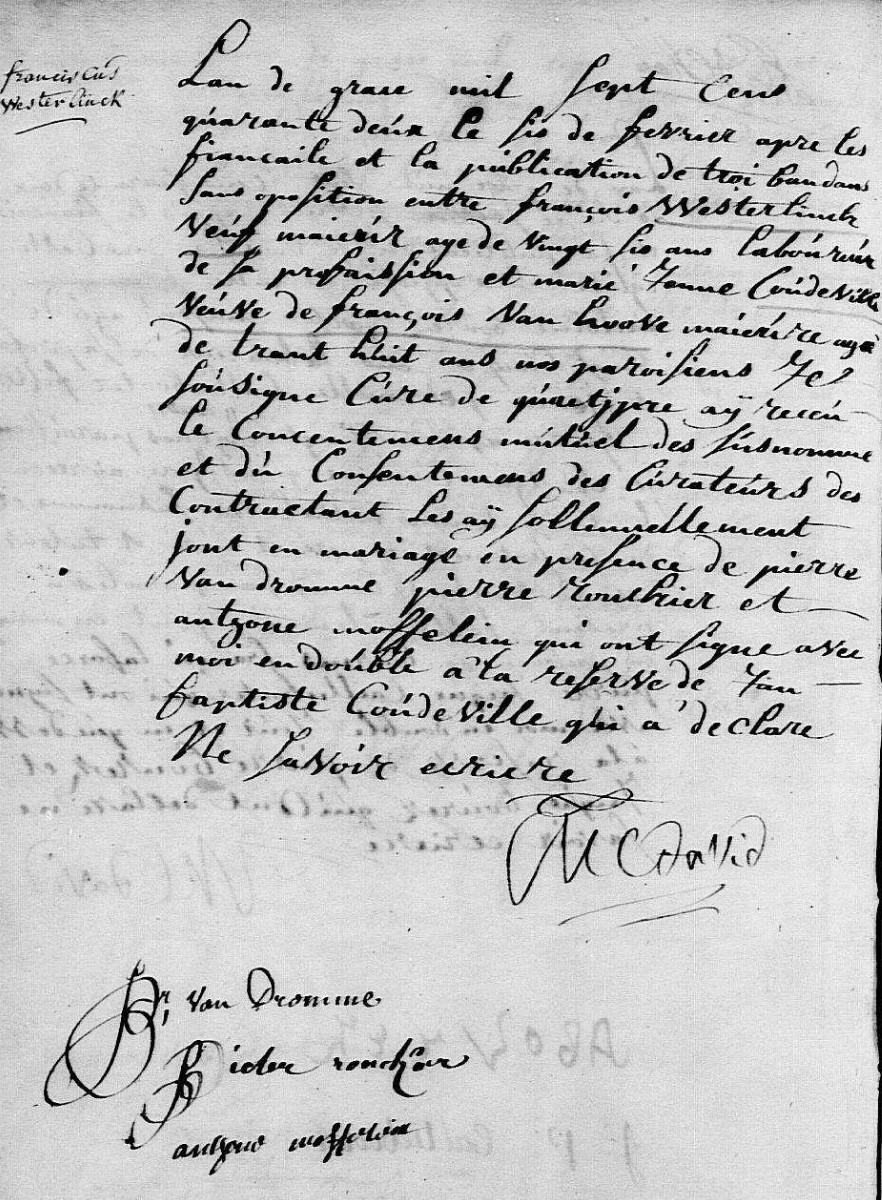 franciscus
Westerlinck
Lan de grase mil sept Cens
quarante deux le sis de fevrier apre les
fiancaile et la publication de troi ban dans
sans oposition entre françois Westerlinck
Veuf maieur age de Vingt sis ans laboureur
de sa profaission et marie Jenne Coudeville
Veuve de françois Van hoove maieure agee
de trant huit ans nos paroisiens Je
sousigne Cure de quaetjpre aÿ receu
le Concentemens mutuel des susnomme
et du Consentemens des Curateurs des
Contractant Les aÿ sollennellement
joint en mariage en presence de pierre
Van dromme pierre ronckier et
antzone mosselein qui ont signe avec
moi en double à la reserve de Jan
baptiste Coudeville qui a declare
Ne savoir ecriere
M C david
Pr Van Dromme
Pieter ronckier
antzone mosselein